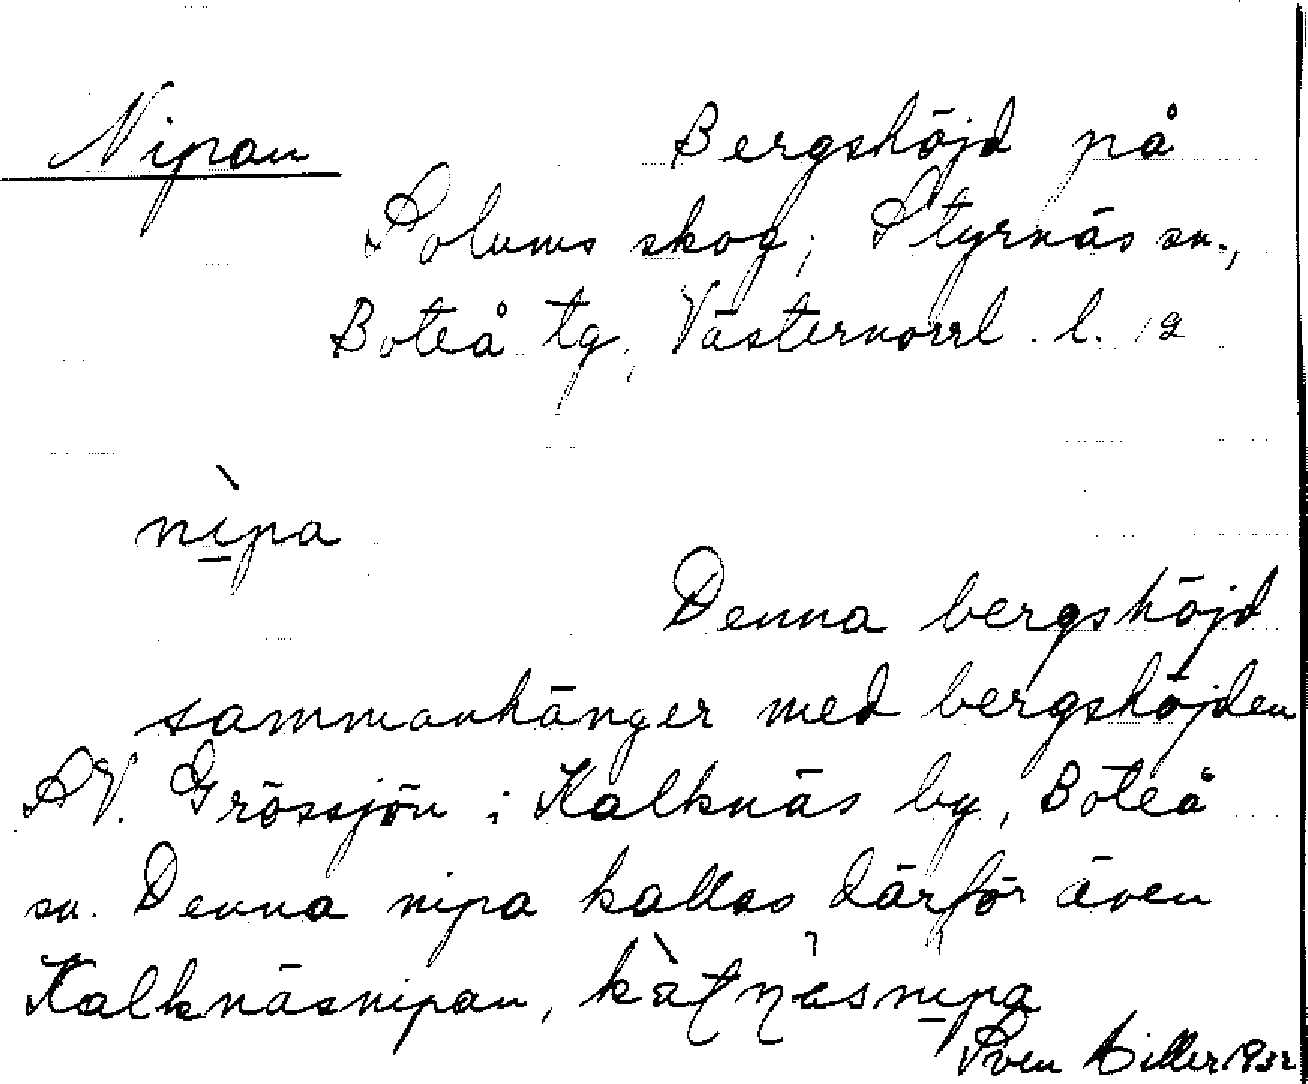 Nipan Bergshöjd på
Polums skog, Styrnäs sn.,
Boteå tg, Västernorrl. l.
nìpa
Denna bergshöjd
sammanhänger med bergshöjden
SV. Grössjön i Kalknäs by, Boteå
sn. Denna nipa kallas därför även
Kalknäsnipan,
Sven Hiller 1932